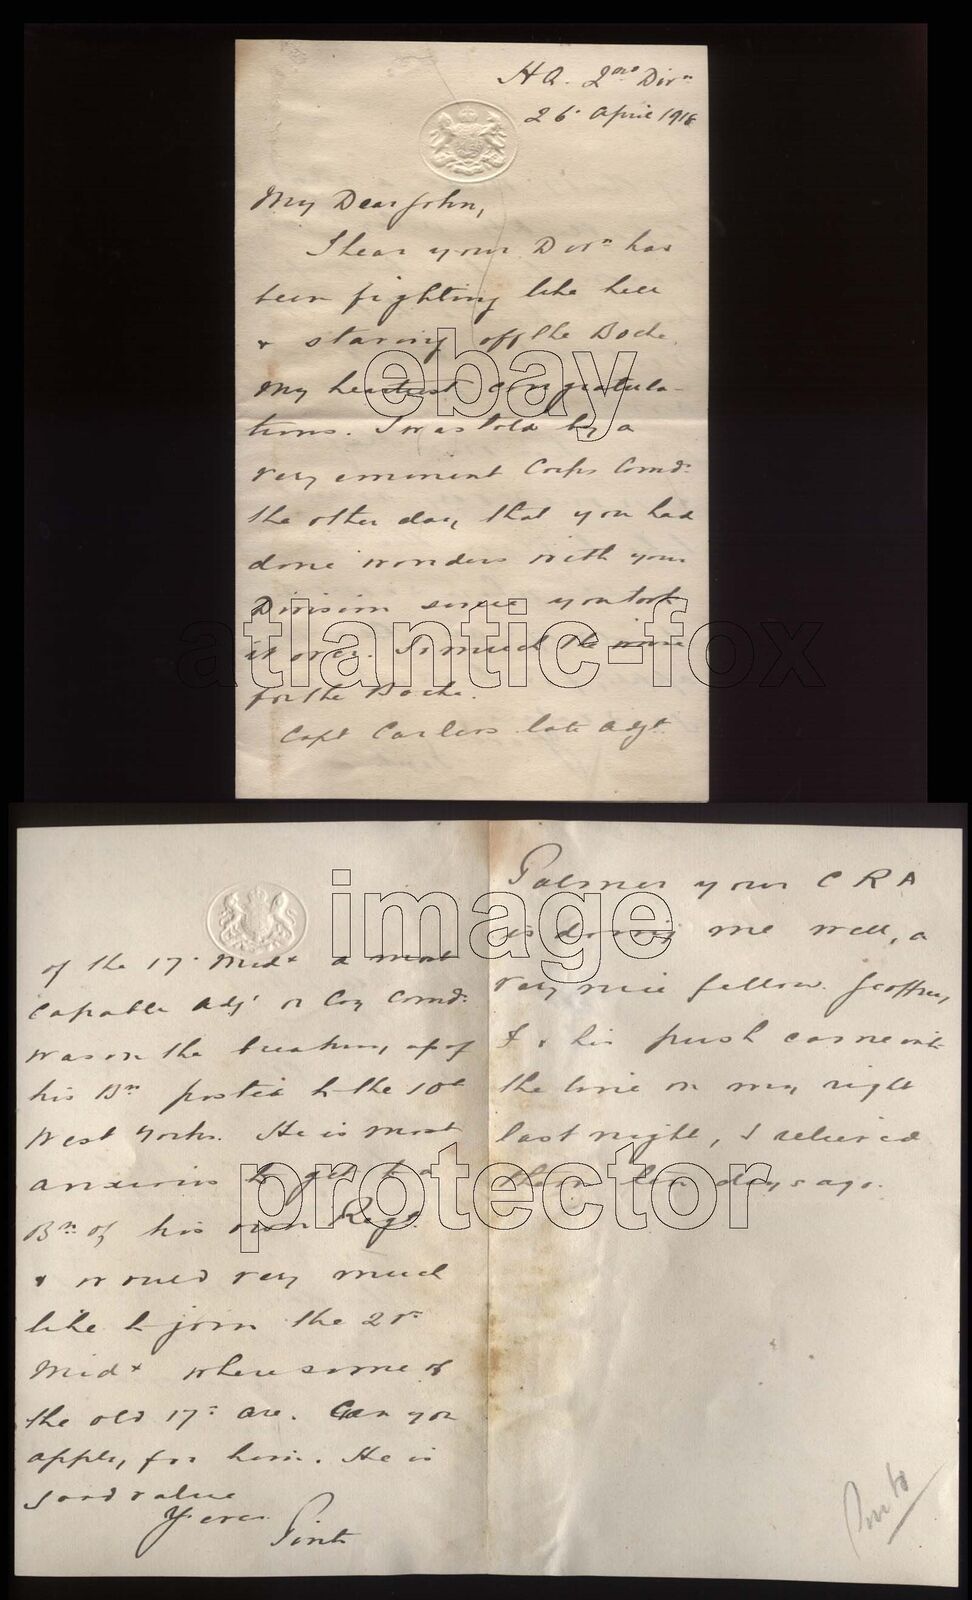 H Q. 2nd Divn
26 April 1918
My Dear John,
I hear your Divn has
been fighting like hell
& staving off the Boche.
My heartiest congratula-
tions. I was told by a
very eminent Corps Comdr
the other day, that you had
done wonders with your
Division since you took
it over. So much the more
for the Boche.
Capt late Adjt
of the 17th Midx a most
capable Adjt or Coy Comdr
was on the breaking up of
his Bn posted to the 10th
West Yorks. He is most
anxious to get to a
Bn of his own Regt.
& would very much
like to join the 21st
Midx where some of
the old 17th are. Can you
apply for him. He is
good value
Yrs ever
Pinto
Palmer your C R A
is doing me well, a
very nice fellow. Geoffrey
F & his push came into
the line on my right
last night, I relieved
them ten days ago.
Pinto
ebay
atlantic-fox
image
protector